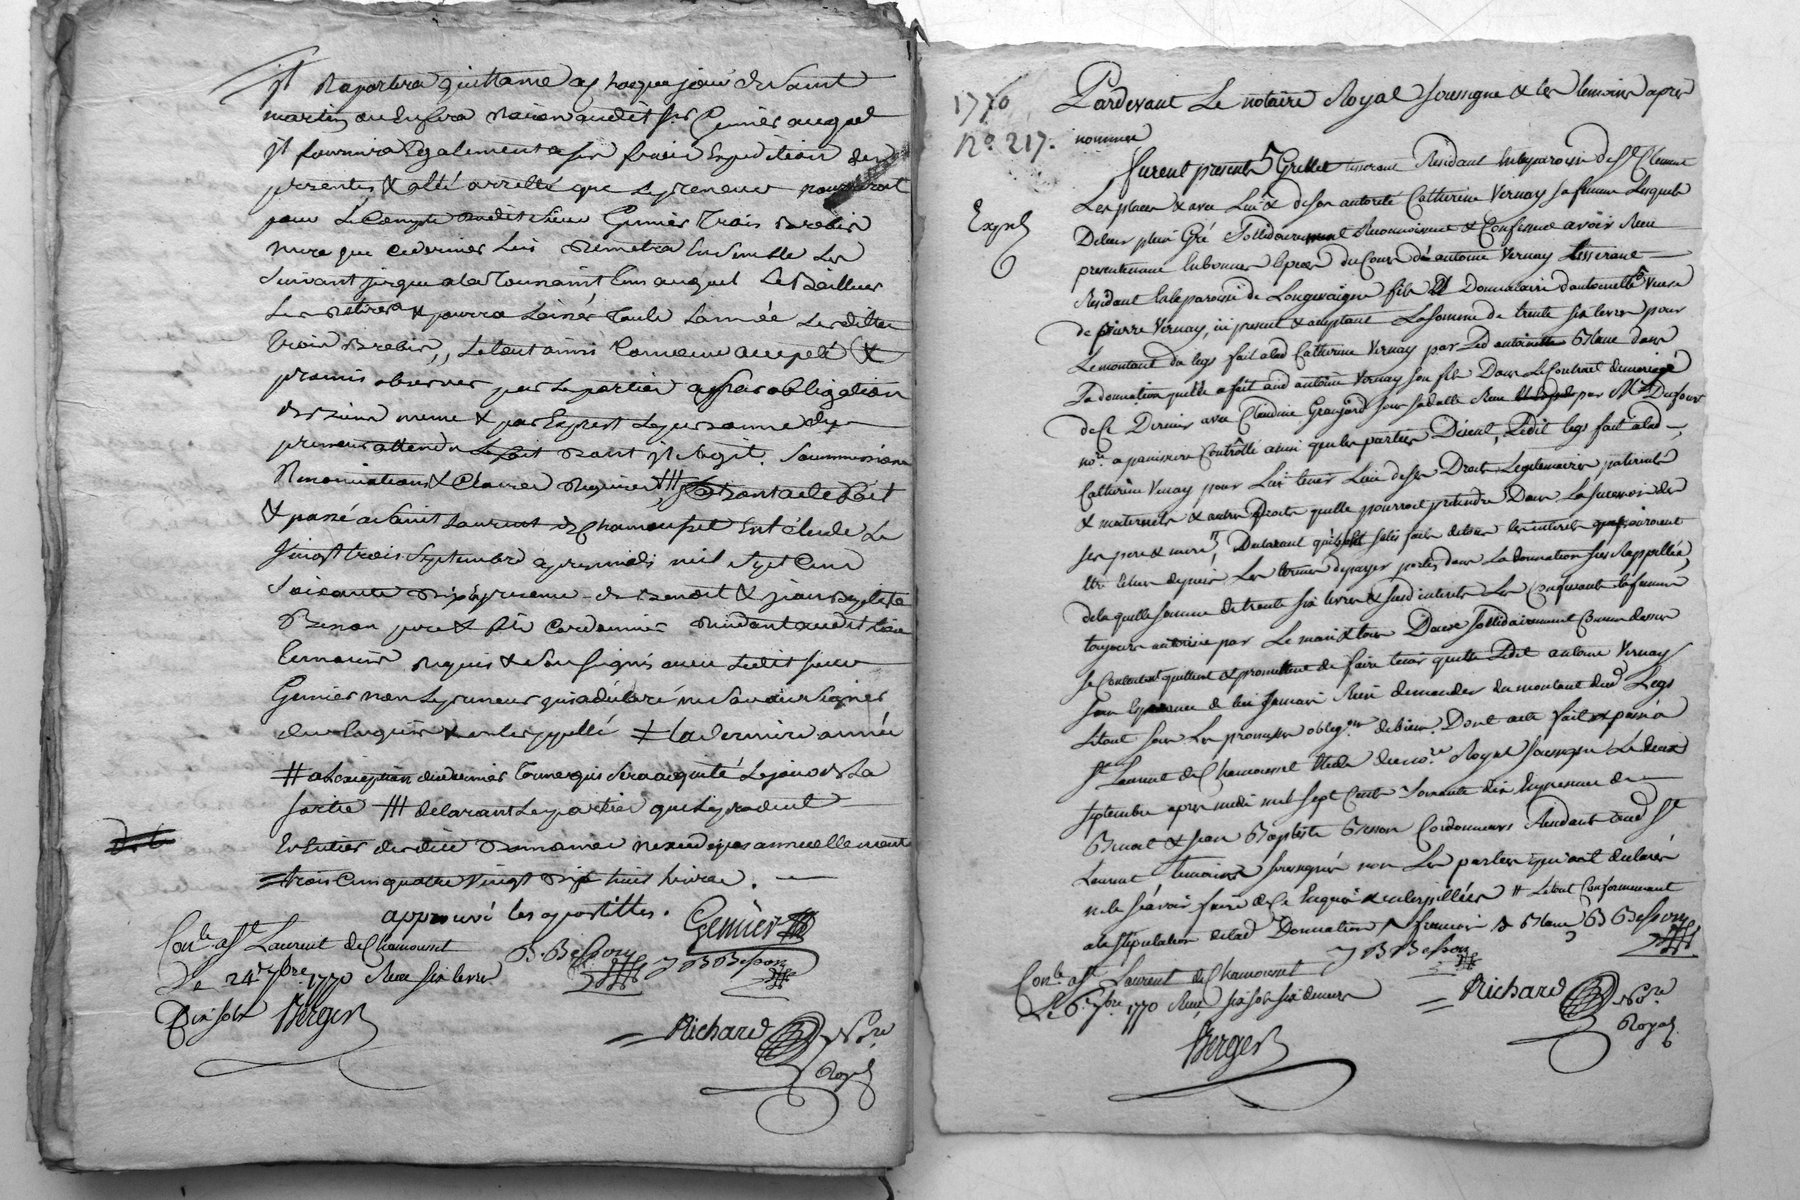 jl Raportera quittance a chaque jour de Saint
martin ou Enfera Raison audit Sr. Genier auquel
jl fournira Egalement a ses frais Expedition des
presentes, & a été arretté que le preneur nourrirat
pour le Compte dudit Sieur Genier Trois Brebis
mere que ce dernier lui Remetra Ensemble les
Suivant jusque a la Toussaint tems auquel le Bailleur
les Retirera & pourra laisser Toute L'année lesdites
trois Brebis, Le tout ainsi Convenu accepté &
promis observer par les parties a peine obligation
de biens meme & par Expret le personne du
preneur attendu le fait dont jl S'agit. Soummissions
Renonciations & Clauses Requises /// Dont acte fait
& passé a Saint Laurent de Chamousset Ent étude Le
Vingt trois Septembre apres midi mil Sept Cent
Soixante dix presence de Benoit & jean Baptiste
Besson pere & fils Cordonnier Residant audit lieu
temoins Requis & Soussignés avec Ledit sieur
Genier non le preneur qui a déclaré ne Savoir Signer
de ce Enquis & interppellé # la derniere année
# a L'exeption du dernier Terme qui Sera acquité Lejour de La
sortie /// declarant les parties que le produit
En Entier dudit Domaine n'excede pas annuellement
trois Cens quatre vingt dix huit Livres.
approuvé les apostilles.
Genier
B. Besson
J B Besson
Conlé a St. Laurent de Chamousset
Le 24 7bre. 1770 Reçu six livres
Dix sols Berger
Richard Nore
Royal
1770
No. 217.
Expé
Pardevant Le notaire Royal Soussigné & les temoins apres
nommés
furent presents Grellet tisserant Residant en la paroisse de St. Clement
Les places & avec Lui & de son autorité Catherine Vernay sa femme Lesquels
De leur plein Gré Sollidairement Reconnoissent & Confessent avoir Reçu
presentement en bonnes Especes du Cours de antoine Vernay tisserant
Residant en la paroisse de Longessaigne fils & Donnataire d'antoinette Veuve
de pierre Vernay, ici present & aceptant La somme de trente six livres pour
Le montant du legs fait a lad Catherine Vernay par Lad antoinette Blanc dans
La donnation qu'elle a fait aud antoine Vernay son fils Dans Le Contrat de mariage
de Ce Dernier avec Claudine Granjard sous sa datte Reçu par Me. Dufour
nore. a panissiere Controllé ainsi que les parties Disent, Ledit legs fait a lad
Catherine Vernay pour Lui tenir Lieu de ses Droits Legitimaires paternels
& maternels & autres Droits qu'elle pourroit pretendre Dans La succession de
ses pere & mere, Declarant qu'ils ont satisfaits de tous les interets qui pouroient
etre echus depuis Les termes de payer portés dans La donnation sus Rappellée,
de la quelle somme de trente six livres & susd interets Les Confessants la femme
toujours autorisée par Le mari & tous Deux Sollidairement Comme dessus
Se Contentent quittent & promettent de faire tenir quitte Ledit antoine Vernay
sans Esperance de lui jamais Rien demander du montant dud Legs
Letout sous Les promesses oblig.on de biens. Dont acte fait & passé a
St. Laurent de Chamousset Etude du nore. Royal Soussigné Le deux
septembre apres midi mil Sept Cents Soixante dix En presence de
Benoit & Jean Baptiste Besson Cordonniers Residants aud St.
Laurent temoins soussignés non Les parties qui ont declarés
ne le sçavoir faire de Ce Enquis & interpellées # Le tout Conformement
a la Stipulation de lad. Donnation
B Besson
J B Besson
Conlé a St. Laurent de Chamousset
Le 6. 7bre. 1770 Reçu six sols six deniers
Richard Nore.
Royal
Berger